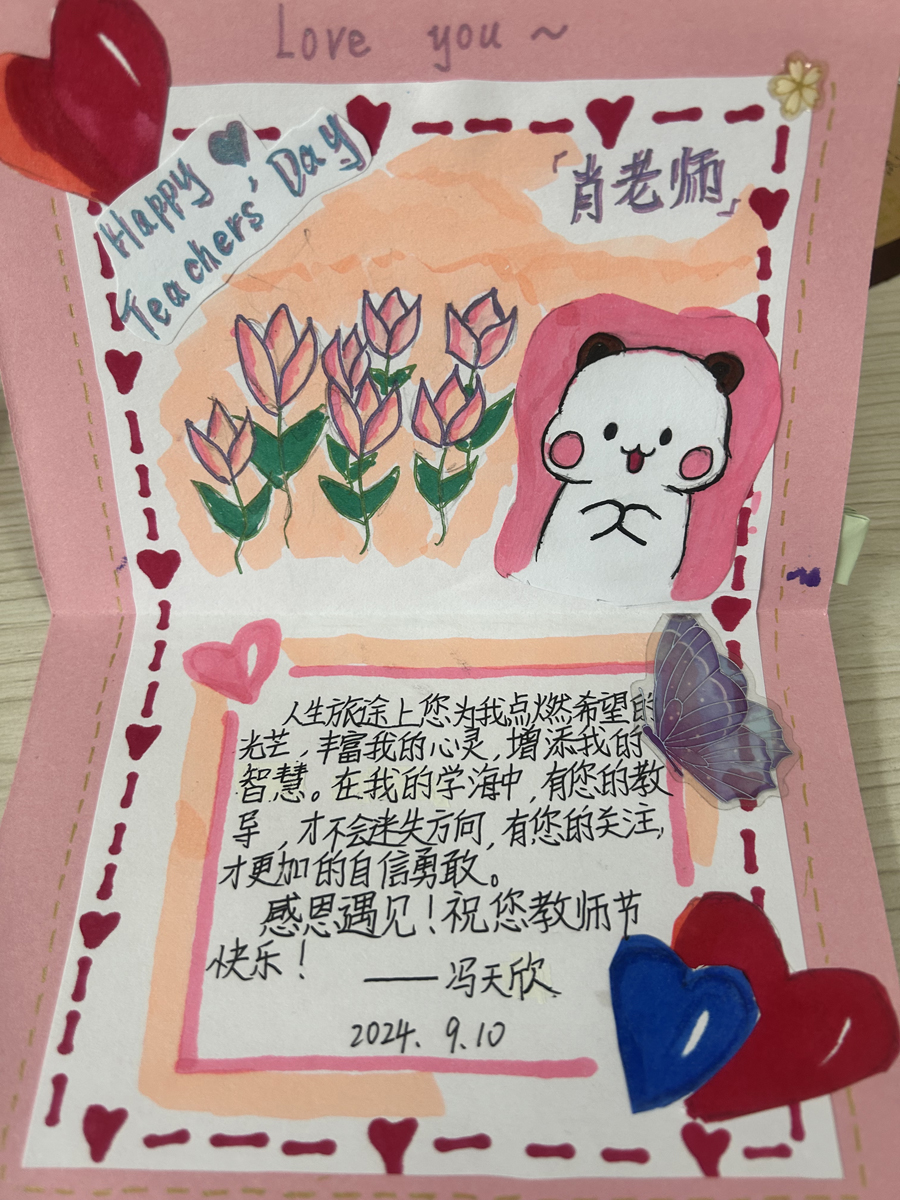 Love you ~
Happy
Teachers' Day
「肖老师」
人生旅途上您为我点燃希望的
光芒，丰富我的心灵，增添我的
智慧。在我的学海中，有您的教
导，才不会迷失方向，有您的关注，
才更加的自信勇敢。
感恩遇见！祝您教师节
快乐！
——冯天欣
2024. 9.10